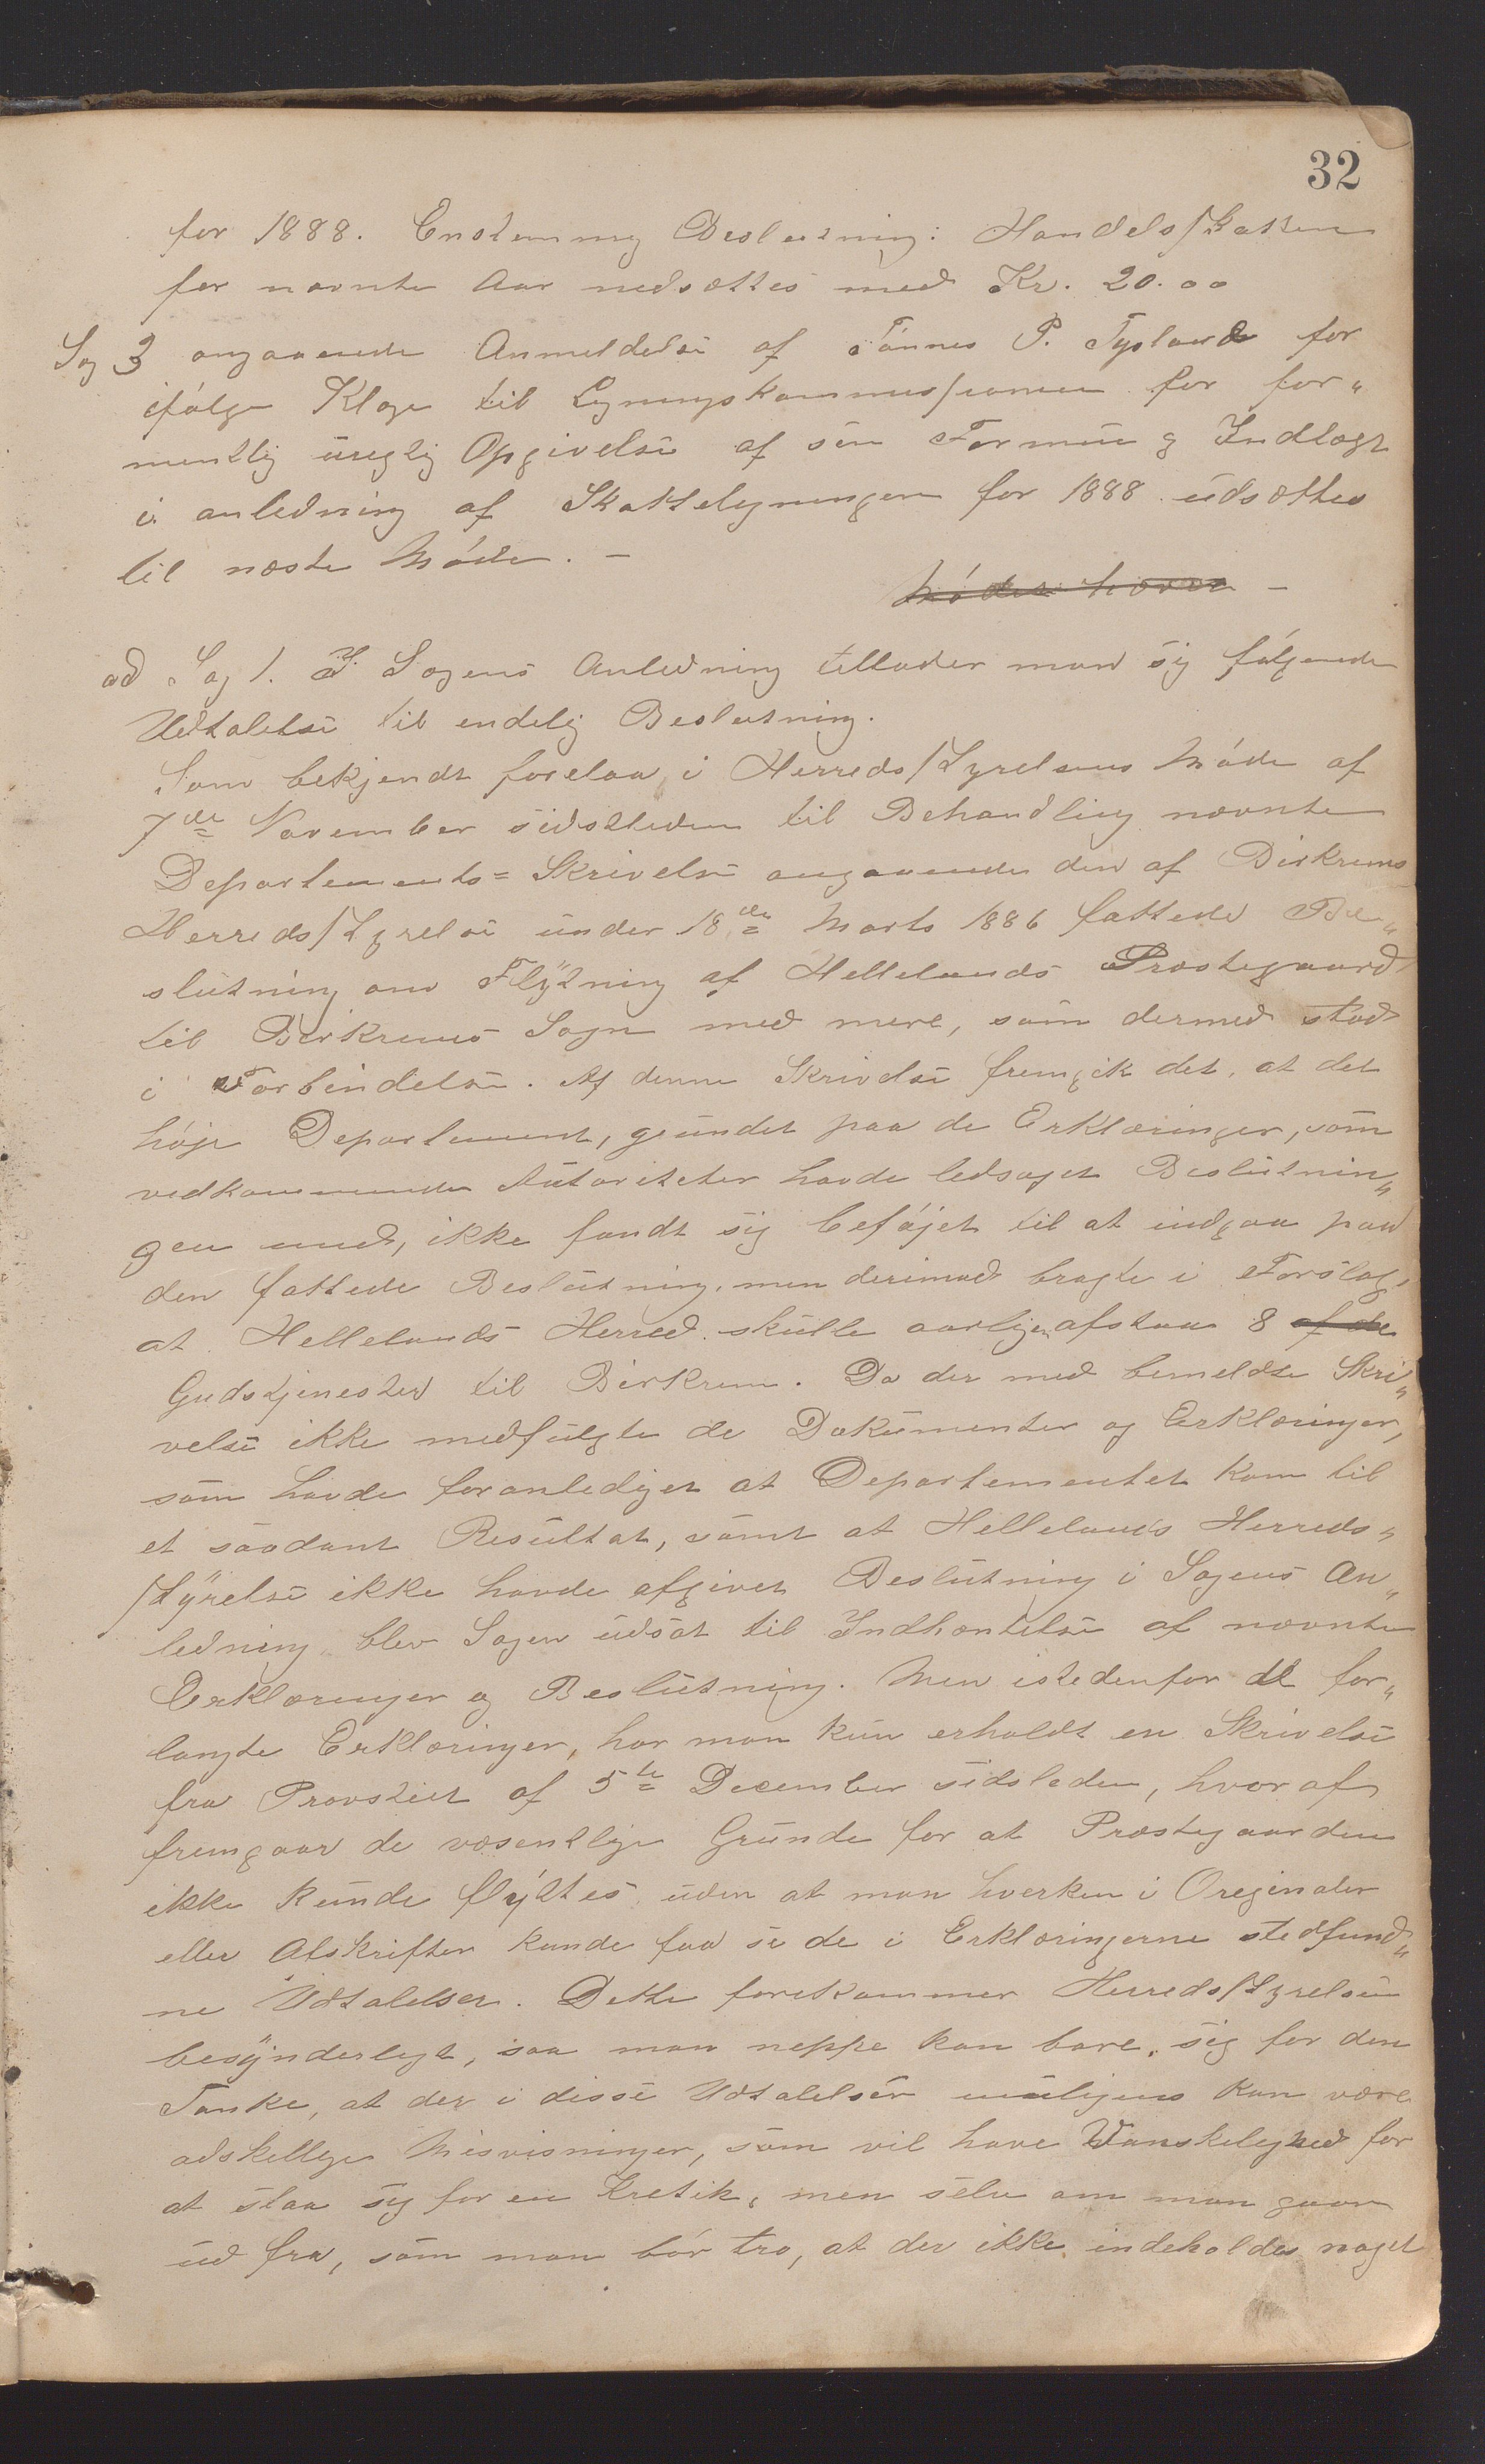 32
for 1888. Enstemmig Beslutning: Handelsskatten
for nævnte Aar nedsættes med Kr. 20.00
Sag 3 angaaende Anmeldelse af Tønnes P. Tysland for
ifølge Klage til Ligningskommissionen for for„
mentlig urigtig Opgivelse af sin Formue og Indtægt
i anledning af Skatteligningen for 1888 udsættes
til næste Møde. –
Mødet hævet –
ad Sag 1. I Sagens Anledning tillader man sig følgende
Udtalelse til endelig Beslutning.
Som bekjendt forelaa i Herredsstyrelsens Møde af
7de November sidstleden til Behandling nævnte
Departements= Skrivelse angaaende den af Birkrems
Herredsstyrelse under 18de Marts 1886 fattede Be„
slutning om Flytning af Hellelands Præstegaard
til Birkrems Sogn med mere, som dermed stod
i Forbindelse. Af denne Skrivelse fremgik det, at det
høje Departement, grundet paa de Erklæringer, som
vedkommende Autoriteter havde ledsaget Beslutnin„
gen med, ikke fandt sig beføjet til at indgaa paa
den fattede Beslutning, men derimod bragte i Forslag,
at Hellelands Herred skulle aarligen afstaa 8 af de
Gudstjenester til Birkrem. Da der med bemeldte Skri„
velse ikke medfulgte de Dokumenter og Erklæringer,
som havde foranlediget at Departementet kom til
et saadant Resultat, samt at Hellelands Herreds„
styrelse ikke havde afgivet Beslutning i Sagens An„
ledning blev Sagen udsat til Indhentelse af nævnte
Erklæringer og Beslutning. Men istedenfor de for„
langte Erklæringer, har man kun erholdt en Skrivelse
fra Provstiet af 5te December sidsleden, hvoraf
fremgaar de væsentlige Grunde for at Præstegaarden
ikke kunde flyttes uden at man hverken i Oreginaler
eller Afskrifter kunde faa se de i Erklæringerne stedfund„
ne Udtalelser. Dette forekommer Herredsstyrelsen
besynderligt, saa man neppe kan bare sig for den
Tanke, at der i disse Udtalelser muligens kan være
adskellige Misvisninger, som vil have Vanskelighed for
at slaa sig for en Kretik, men selv om man gaar
ud fra, som man bør tro, at der ikke indeholdes noget